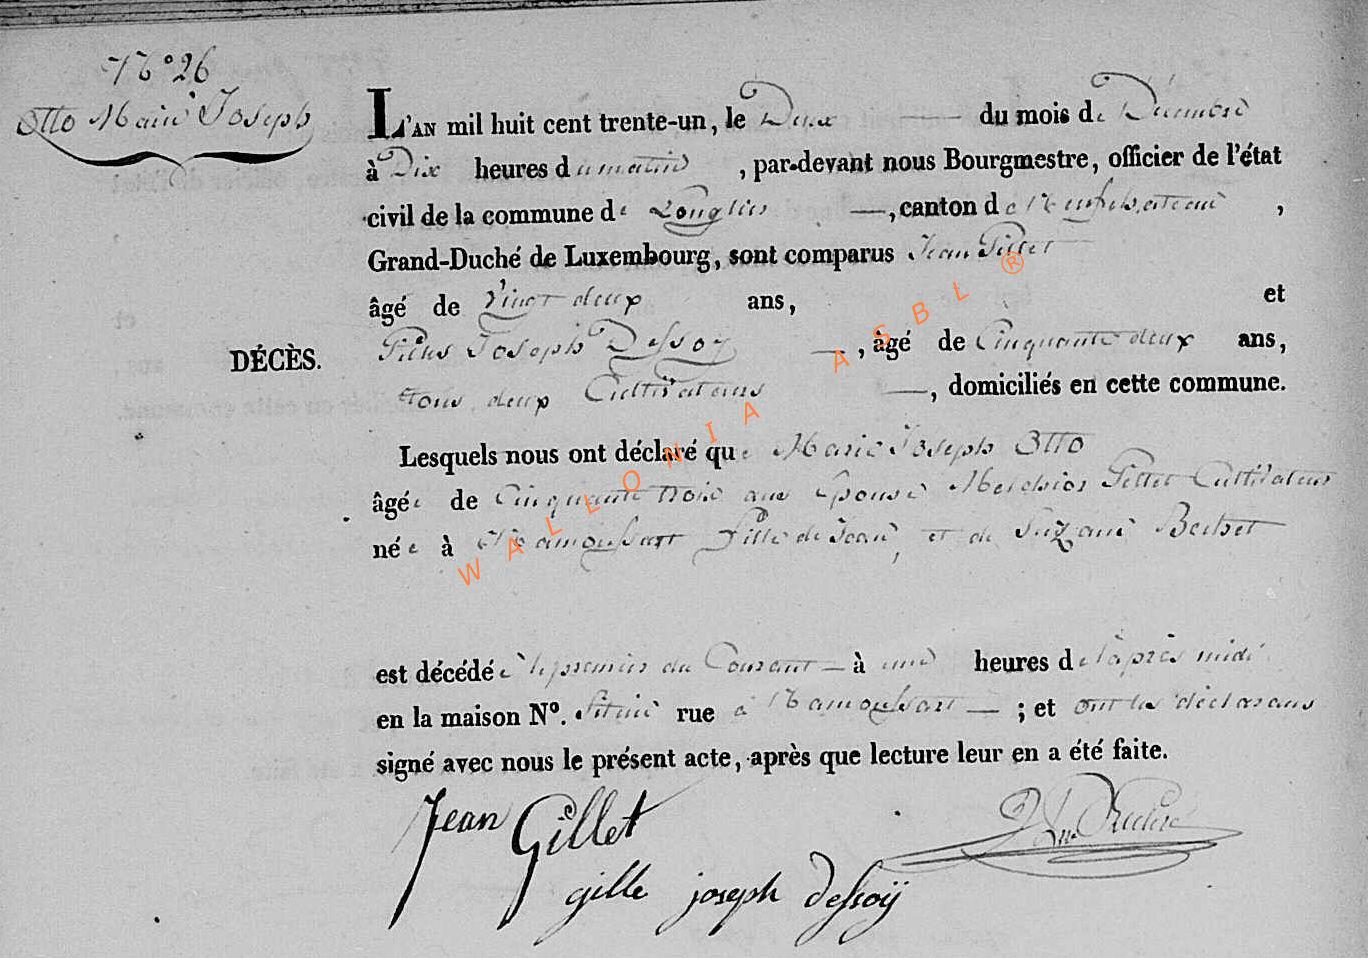 N° 26
Otto Marie Joseph
L'AN mil huit cent trente-un, le Deux du mois de Décembre
à Dix heures du matin, par-devant nous Bourgmestre, officier de l'état
civil de la commune de Longlier, canton de Neufchateau,
Grand-Duché de Luxembourg, sont comparus Jean Gillet
âgé de Vingt deux ans, et
DÉCÈS.
Gilles Joseph Dessoy, âgé de Cinquante deux ans,
tous deux Cultivateurs, domiciliés en cette commune.
Lesquels nous ont déclaré que Marie Joseph Otto
âgée de Cinquante trois ans Epouse Melchior Gillet Cultivateur
née à Namoussart fille de Jean, et de Suzanne
est décédée le premier du Courant à une heures de l'après midi
en la maison N°. Située rue à Namoussart ; et ont les déclarans
signé avec nous le présent acte, après que lecture leur en a été faite.
Jean Gillet
gille joseph dessoÿ
WALLONIA ASBL ®